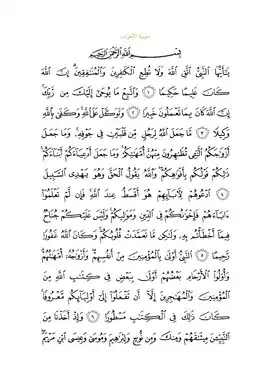 سورة الأحزاب
بِسْمِ ٱللَّهِ ٱلرَّحْمَٰنِ ٱلرَّحِيمِ
يَٰٓأَيُّهَا ٱلنَّبِىُّ ٱتَّقِ ٱللَّهَ وَلَا تُطِعِ ٱلْكَٰفِرِينَ وَٱلْمُنَٰفِقِينَ إِنَّ ٱللَّهَ
كَانَ عَلِيمًا حَكِيمًا ١ وَٱتَّبِعْ مَا يُوحَىٰٓ إِلَيْكَ مِن رَّبِّكَ
إِنَّ ٱللَّهَ كَانَ بِمَا تَعْمَلُونَ خَبِيرًا ٢ وَتَوَكَّلْ عَلَى ٱللَّهِ وَكَفَىٰ بِٱللَّهِ
وَكِيلًا ٣ مَّا جَعَلَ ٱللَّهُ لِرَجُلٍ مِّن قَلْبَيْنِ فِى جَوْفِهِۦ وَمَا جَعَلَ
أَزْوَٰجَكُمُ ٱلَّٰٓـِٔى تُظَٰهِرُونَ مِنْهُنَّ أُمَّهَٰتِكُمْ وَمَا جَعَلَ أَدْعِيَآءَكُمْ أَبْنَآءَكُمْ
ذَٰلِكُمْ قَوْلُكُم بِأَفْوَٰهِكُمْ وَٱللَّهُ يَقُولُ ٱلْحَقَّ وَهُوَ يَهْدِى ٱلسَّبِيلَ
٤ ٱدْعُوهُمْ لِءَابَآئِهِمْ هُوَ أَقْسَطُ عِندَ ٱللَّهِ فَإِن لَّمْ تَعْلَمُوٓا۟
ءَابَآءَهُمْ فَإِخْوَٰنُكُمْ فِى ٱلدِّينِ وَمَوَٰلِيكُمْ وَلَيْسَ عَلَيْكُمْ جُنَاحٌ
فِيمَآ أَخْطَأْتُم بِهِۦ وَلَٰكِن مَّا تَعَمَّدَتْ قُلُوبُكُمْ وَكَانَ ٱللَّهُ غَفُورًا
رَّحِيمًا ٥ ٱلنَّبِىُّ أَوْلَىٰ بِٱلْمُؤْمِنِينَ مِنْ أَنفُسِهِمْ وَأَزْوَٰجُهُۥٓ أُمَّهَٰتُهُمْ
وَأُو۟لُوا۟ ٱلْأَرْحَامِ بَعْضُهُمْ أَوْلَىٰ بِبَعْضٍ فِى كِتَٰبِ ٱللَّهِ مِنَ
ٱلْمُؤْمِنِينَ وَٱلْمُهَٰجِرِينَ إِلَّآ أَن تَفْعَلُوٓا۟ إِلَىٰٓ أَوْلِيَآئِكُم مَّعْرُوفًا
كَانَ ذَٰلِكَ فِى ٱلْكِتَٰبِ مَسْطُورًا ٦ وَإِذْ أَخَذْنَا مِنَ
ٱلنَّبِيِّـۧنَ مِيثَٰقَهُمْ وَمِنكَ وَمِن نُّوحٍ وَإِبْرَٰهِيمَ وَمُوسَىٰ وَعِيسَى ٱبْنِ مَرْيَمَ